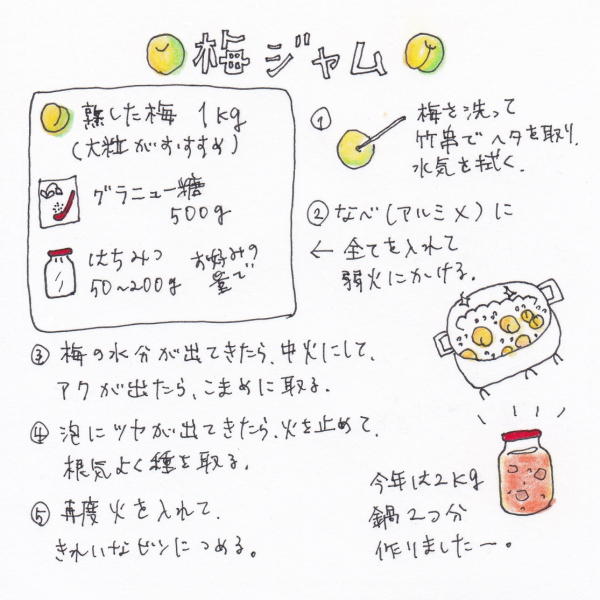 梅ジャム
熟した梅 1kg
(大粒がおすすめ)
グラニュー糖
500g
はちみつ お好みの
50~200g 量で
① 梅を洗って
竹串でヘタを取り、
水気を拭く。
② なべ(アルミ×)に
← 全てを入れて
弱火にかける。
③ 梅の水分が出てきたら、中火にして、
アクが出たら、こまめに取る。
④ 泡にツヤが出てきたら、火を止めて、
根気よく種を取る。
⑤ 再度火を入れて、
きれいなビンにつめる。
今年は2kg
鍋2つ分
作りましたー。